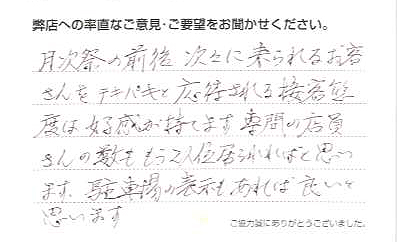 弊店への率直なご意見・ご要望をお聞かせください。
月次祭の前後 次々に来られるお客
さんをテキパキと応待される接客態
度は好感が持てます 専門の店員
さんの数も もう2人位居られればと思い
ます、駐車場の表示もあれば良いと
思います
ご協力誠にありがとうございました。